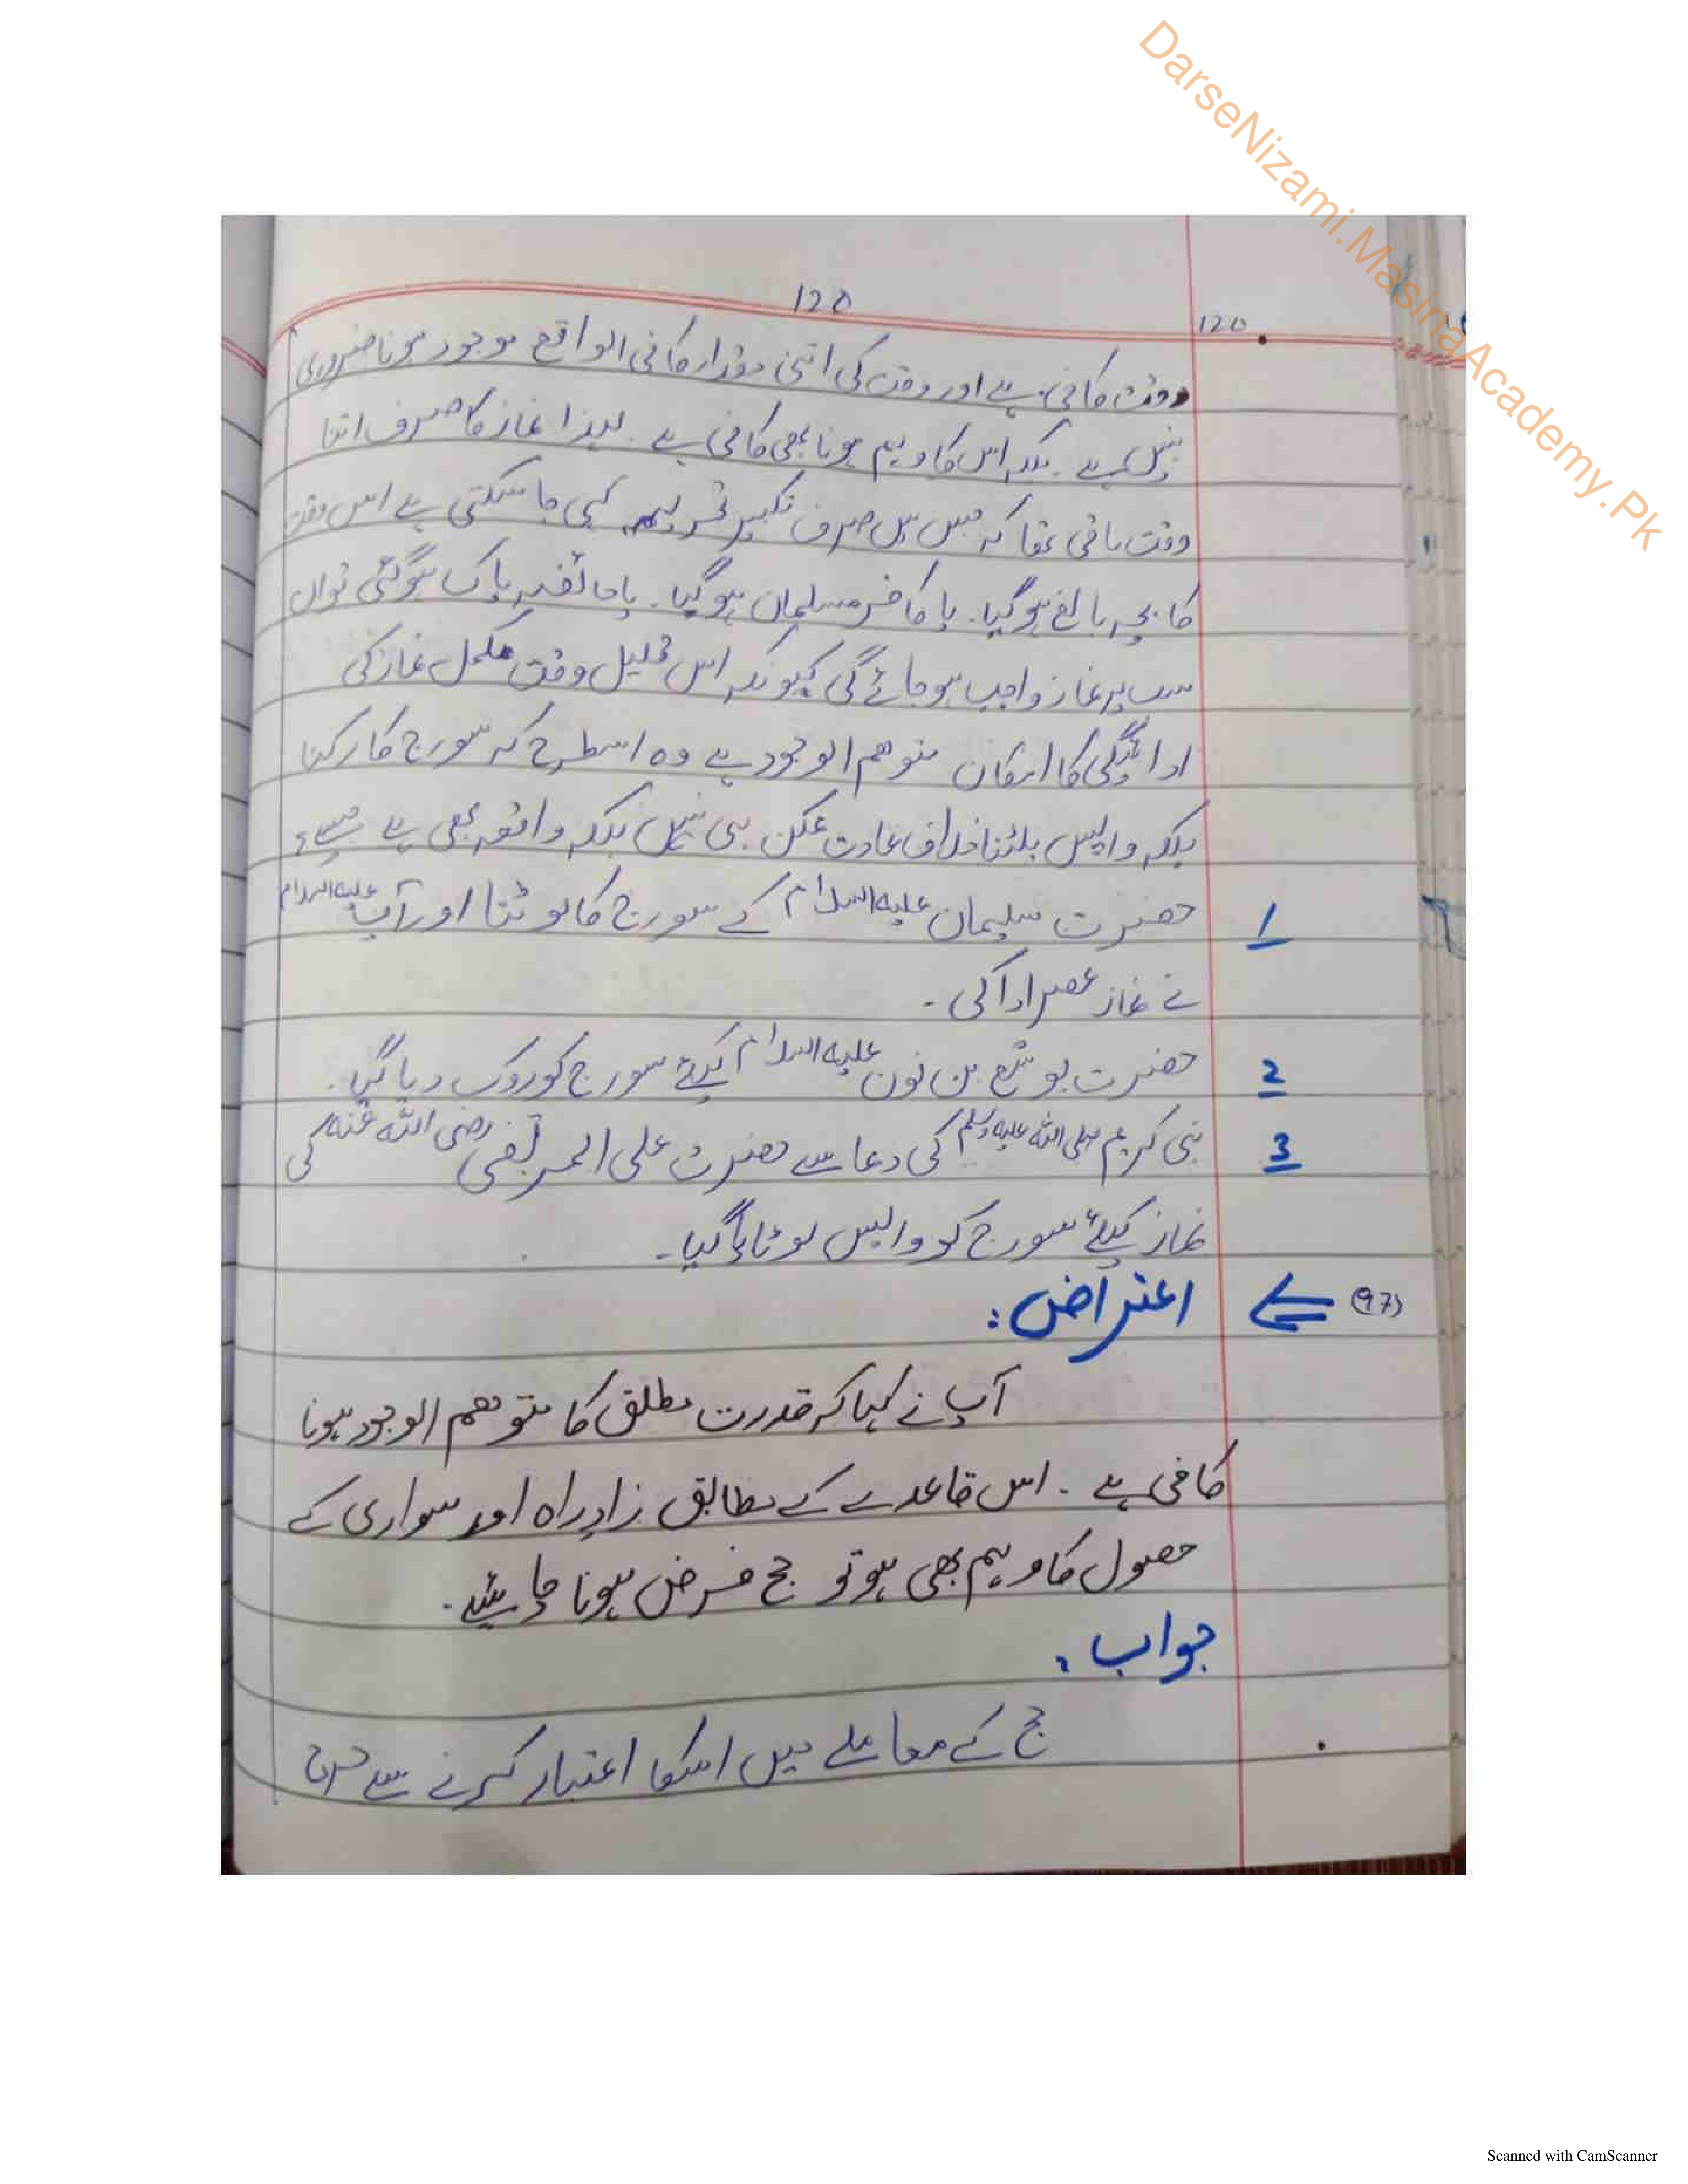 DarseNizami.MasinaAcademy.Pk
120
120
وقت کافی ہے اور وقت کی اتنی مقدار کا فی الواقع موجود ہونا ضروری
نہیں ہے۔ بلکہ اس کا وہم ہونا بھی کافی ہے۔ لہذا نماز کا صرف اتنا
وقت باقی تھا کہ جس میں صرف تکبیر تحریمہ کہی جا سکتی ہے اس وقت
کا بچہ بالغ ہوگیا۔ یا کافر مسلمان ہوگیا۔ یا حائضہ پاک ہوگئی تو ان
سب پر نماز واجب ہوجائے گی کیونکہ اس قلیل وقت مکمل نماز کی
ادائیگی کا امکان متوھم الوجود ہے وہ اسطرح کہ سورج کا رکنا
بلکہ واپس پلٹنا خلاف عادت ممکن ہی نہیں بلکہ واقع بھی ہے جیسے:
1 حضرت سلیمان علیہ السلام کے سورج کا لوٹنا اور آپ علیہ السلام
نے نماز عصر ادا کی۔
2 حضرت یوشع بن نون علیہ السلام کیلئے سورج کو روک دیا گیا۔
3 نبی کریم صلی اللہ علیہ وسلم کی دعا سے حضرت علی المرتضی رضی اللہ عنہ کی
نماز کیلئے سورج کو واپس لوٹایا گیا۔
(97) اعتراض:
آپ نے کہا کہ قدرت مطلق کا متوھم الوجود ہونا
کافی ہے۔ اس قاعدے کے مطابق زادِ راہ اور سواری کے
حصول کا وہم بھی ہو تو حج فرض ہونا چاہئیے۔
جواب:
حج کے معاملے میں اسکا اعتبار کرنے سے حرج
Scanned with CamScanner